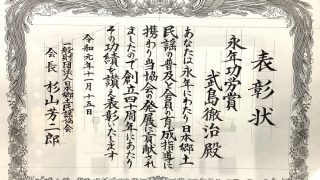 表彰状
永年功労賞
武島徹治殿
あなたは永年にわたり日本郷土
民謡の普及と会員の育成指導に
携わり当協会の発展に貢献され
ましたので創立四十周年にあたり
その功績を讃え表彰いたします
令和元年十一月十五日
一般財団法人日本郷土民謡協会
会長 杉山芳二郎